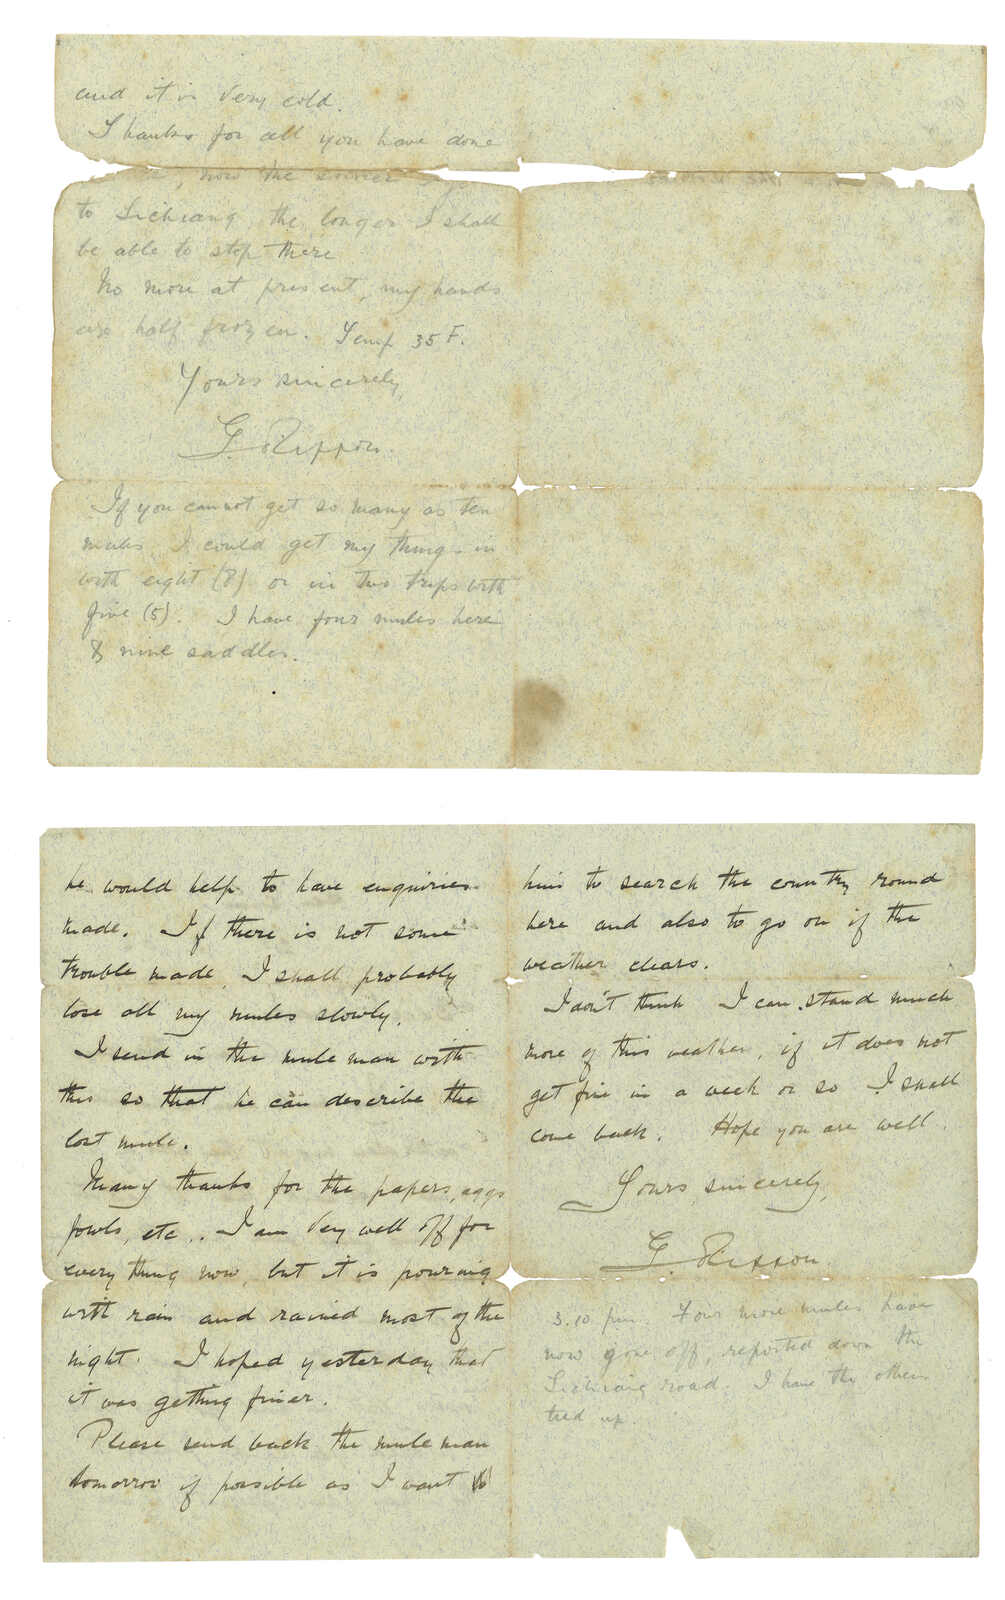 and it is very cold.
Thanks for all you have done
now the sooner
to Lichiang the longer I shall
be able to stop there
No more at present, my hands
are half frozen. Temp 35 F.
Yours sincerely,
G. Rippon.
If you cannot get so many as ten
mules I could get my things in
with eight (8) or in two trips with
five (5). I have four mules here
& nine saddles.
he would help to have enquiries
made. If there is not some
trouble made, I shall probably
lose all my mules slowly.
I send in the mule man with
this so that he can describe the
lost mule.
Many thanks for the papers, eggs
fowls, etc.. I am very well off for
every thing now, but it is pouring
with rain and rained most of the
night. I hoped yesterday that
it was getting finer.
Please send back the mule man
tomorrow if possible as I want
him to search the country round
here and also to go on if the
weather clears.
I don't think I can stand much
more of this weather, if it does not
get fine in a week or so I shall
come back. Hope you are well.
Yours sincerely,
G. Rippon.
3.10 pm. Four more mules have
now gone off, reported down the
Lichiang road. I have the others
tied up.